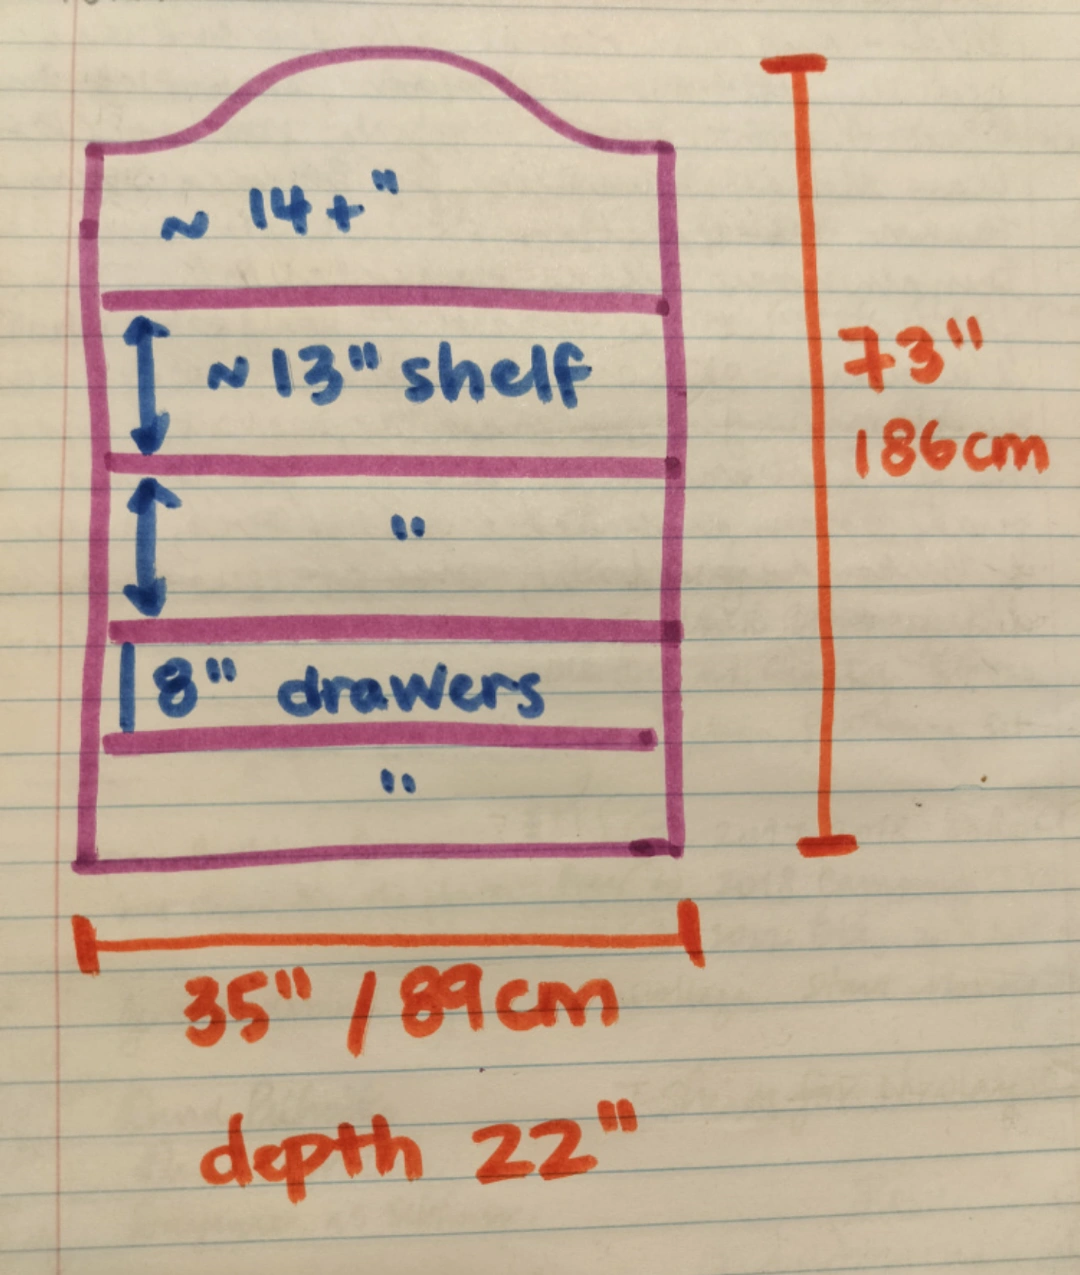 ~ 14+"
~ 13" shelf
"
8" drawers
"
73"
186cm
35" / 89cm
depth 22"